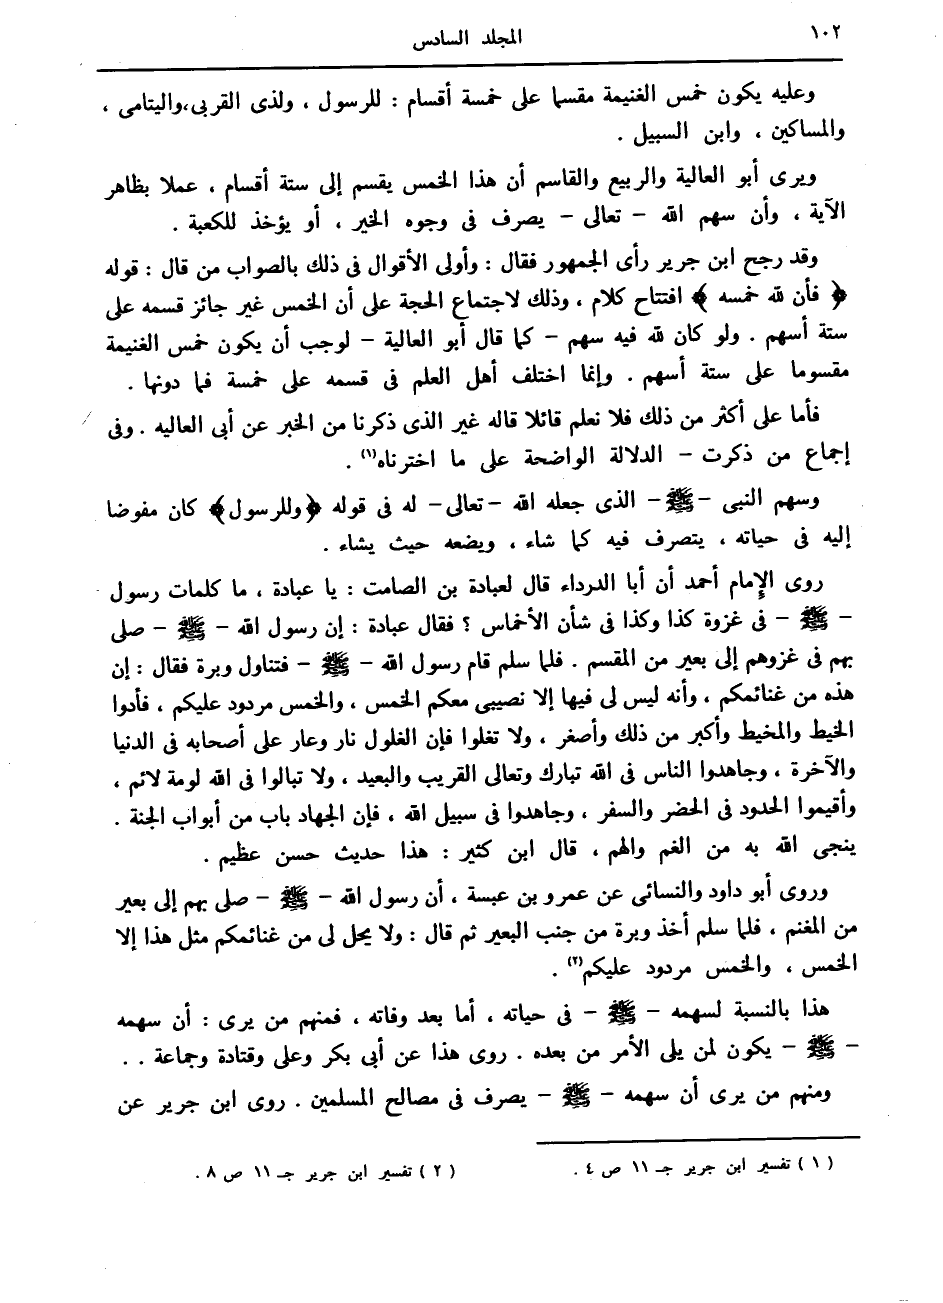 ١٠٢
المجلد السادس
وعليه يكون خمس الغنيمة مقسما على خمسة أقسام : للرسول ، ولذى القربى،واليتامى ،
والمساكين ، وابن السبيل .
ويرى أبو العالية والربيع والقاسم أن هذا الخمس يقسم إلى ستة أقسام ، عملا بظاهر
الآية ، وأن سهم الله – تعالى – يصرف فى وجوه الخير ، أو يؤخذ للكعبة .
وقد رجح ابن جرير رأى الجمهور فقال : وأولى الأقوال فى ذلك بالصواب من قال : قوله
﴿ فأن لله خمسه ﴾ افتتاح كلام ، وذلك لاجتماع الحجة على أن الخمس غير جائز قسمه على
ستة أسهم . ولو كان لله فيه سهم – كما قال أبو العالية – لوجب أن يكون خمس الغنيمة
مقسوما على ستة أسهم . وإنما اختلف أهل العلم فى قسمه على خمسة فما دونها .
فأما على أكثر من ذلك فلا نعلم قائلا قاله غير الذى ذكرنا من الخبر عن أبى العاليه . وفى
إجماع من ذكرت – الدلالة الواضحة على ما اخترناه(١) .
وسهم النبى –ﷺ– الذى جعله الله –تعالى– له فى قوله ﴿وللرسول﴾ كان مفوضا
إليه فى حياته ، يتصرف فيه كما شاء ، ويضعه حيث يشاء .
روى الإمام أحمد أن أبا الدرداء قال لعبادة بن الصامت : يا عبادة ، ما كلمات رسول
– ﷺ – فى غزوة كذا وكذا فى شأن الأخماس ؟ فقال عبادة : إن رسول الله – ﷺ – صلى
بهم فى غزوهم إلى بعير من المقسم . فلما سلم قام رسول الله – ﷺ – فتناول وبرة فقال : إن
هذه من غنائمكم ، وأنه ليس لى فيها إلا نصيبى معكم الخمس ، والخمس مردود عليكم ، فأدوا
الخيط والمخيط وأكبر من ذلك وأصغر ، ولا تغلوا فإن الغلول نار وعار على أصحابه فى الدنيا
والآخرة ، وجاهدوا الناس فى الله تبارك وتعالى القريب والبعيد ، ولا تبالوا فى الله لومة لائم ،
وأقيموا الحدود فى الحضر والسفر ، وجاهدوا فى سبيل الله ، فإن الجهاد باب من أبواب الجنة .
ينجى الله به من الغم والهم ، قال ابن كثير : هذا حديث حسن عظيم .
وروى أبو داود والنسائى عن عمرو بن عبسة ، أن رسول الله – ﷺ – صلى بهم إلى بعير
من المغنم ، فلما سلم أخذ وبرة من جنب البعير ثم قال : ولا يحل لى من غنائمكم مثل هذا إلا
الخمس ، والخمس مردود عليكم(٢) .
هذا بالنسبة لسهمه – ﷺ – فى حياته ، أما بعد وفاته ، فمنهم من يرى : أن سهمه
– ﷺ – يكون لمن يلى الأمر من بعده . روى هذا عن أبى بكر وعلى وقتادة وجماعة . .
ومنهم من يرى أن سهمه – ﷺ – يصرف فى مصالح المسلمين . روى ابن جرير عن
( ١ ) تفسير ابن جرير جـ ١١ ص ٤ .
( ٢ ) تفسير ابن جرير جـ ١١ ص ٨ .